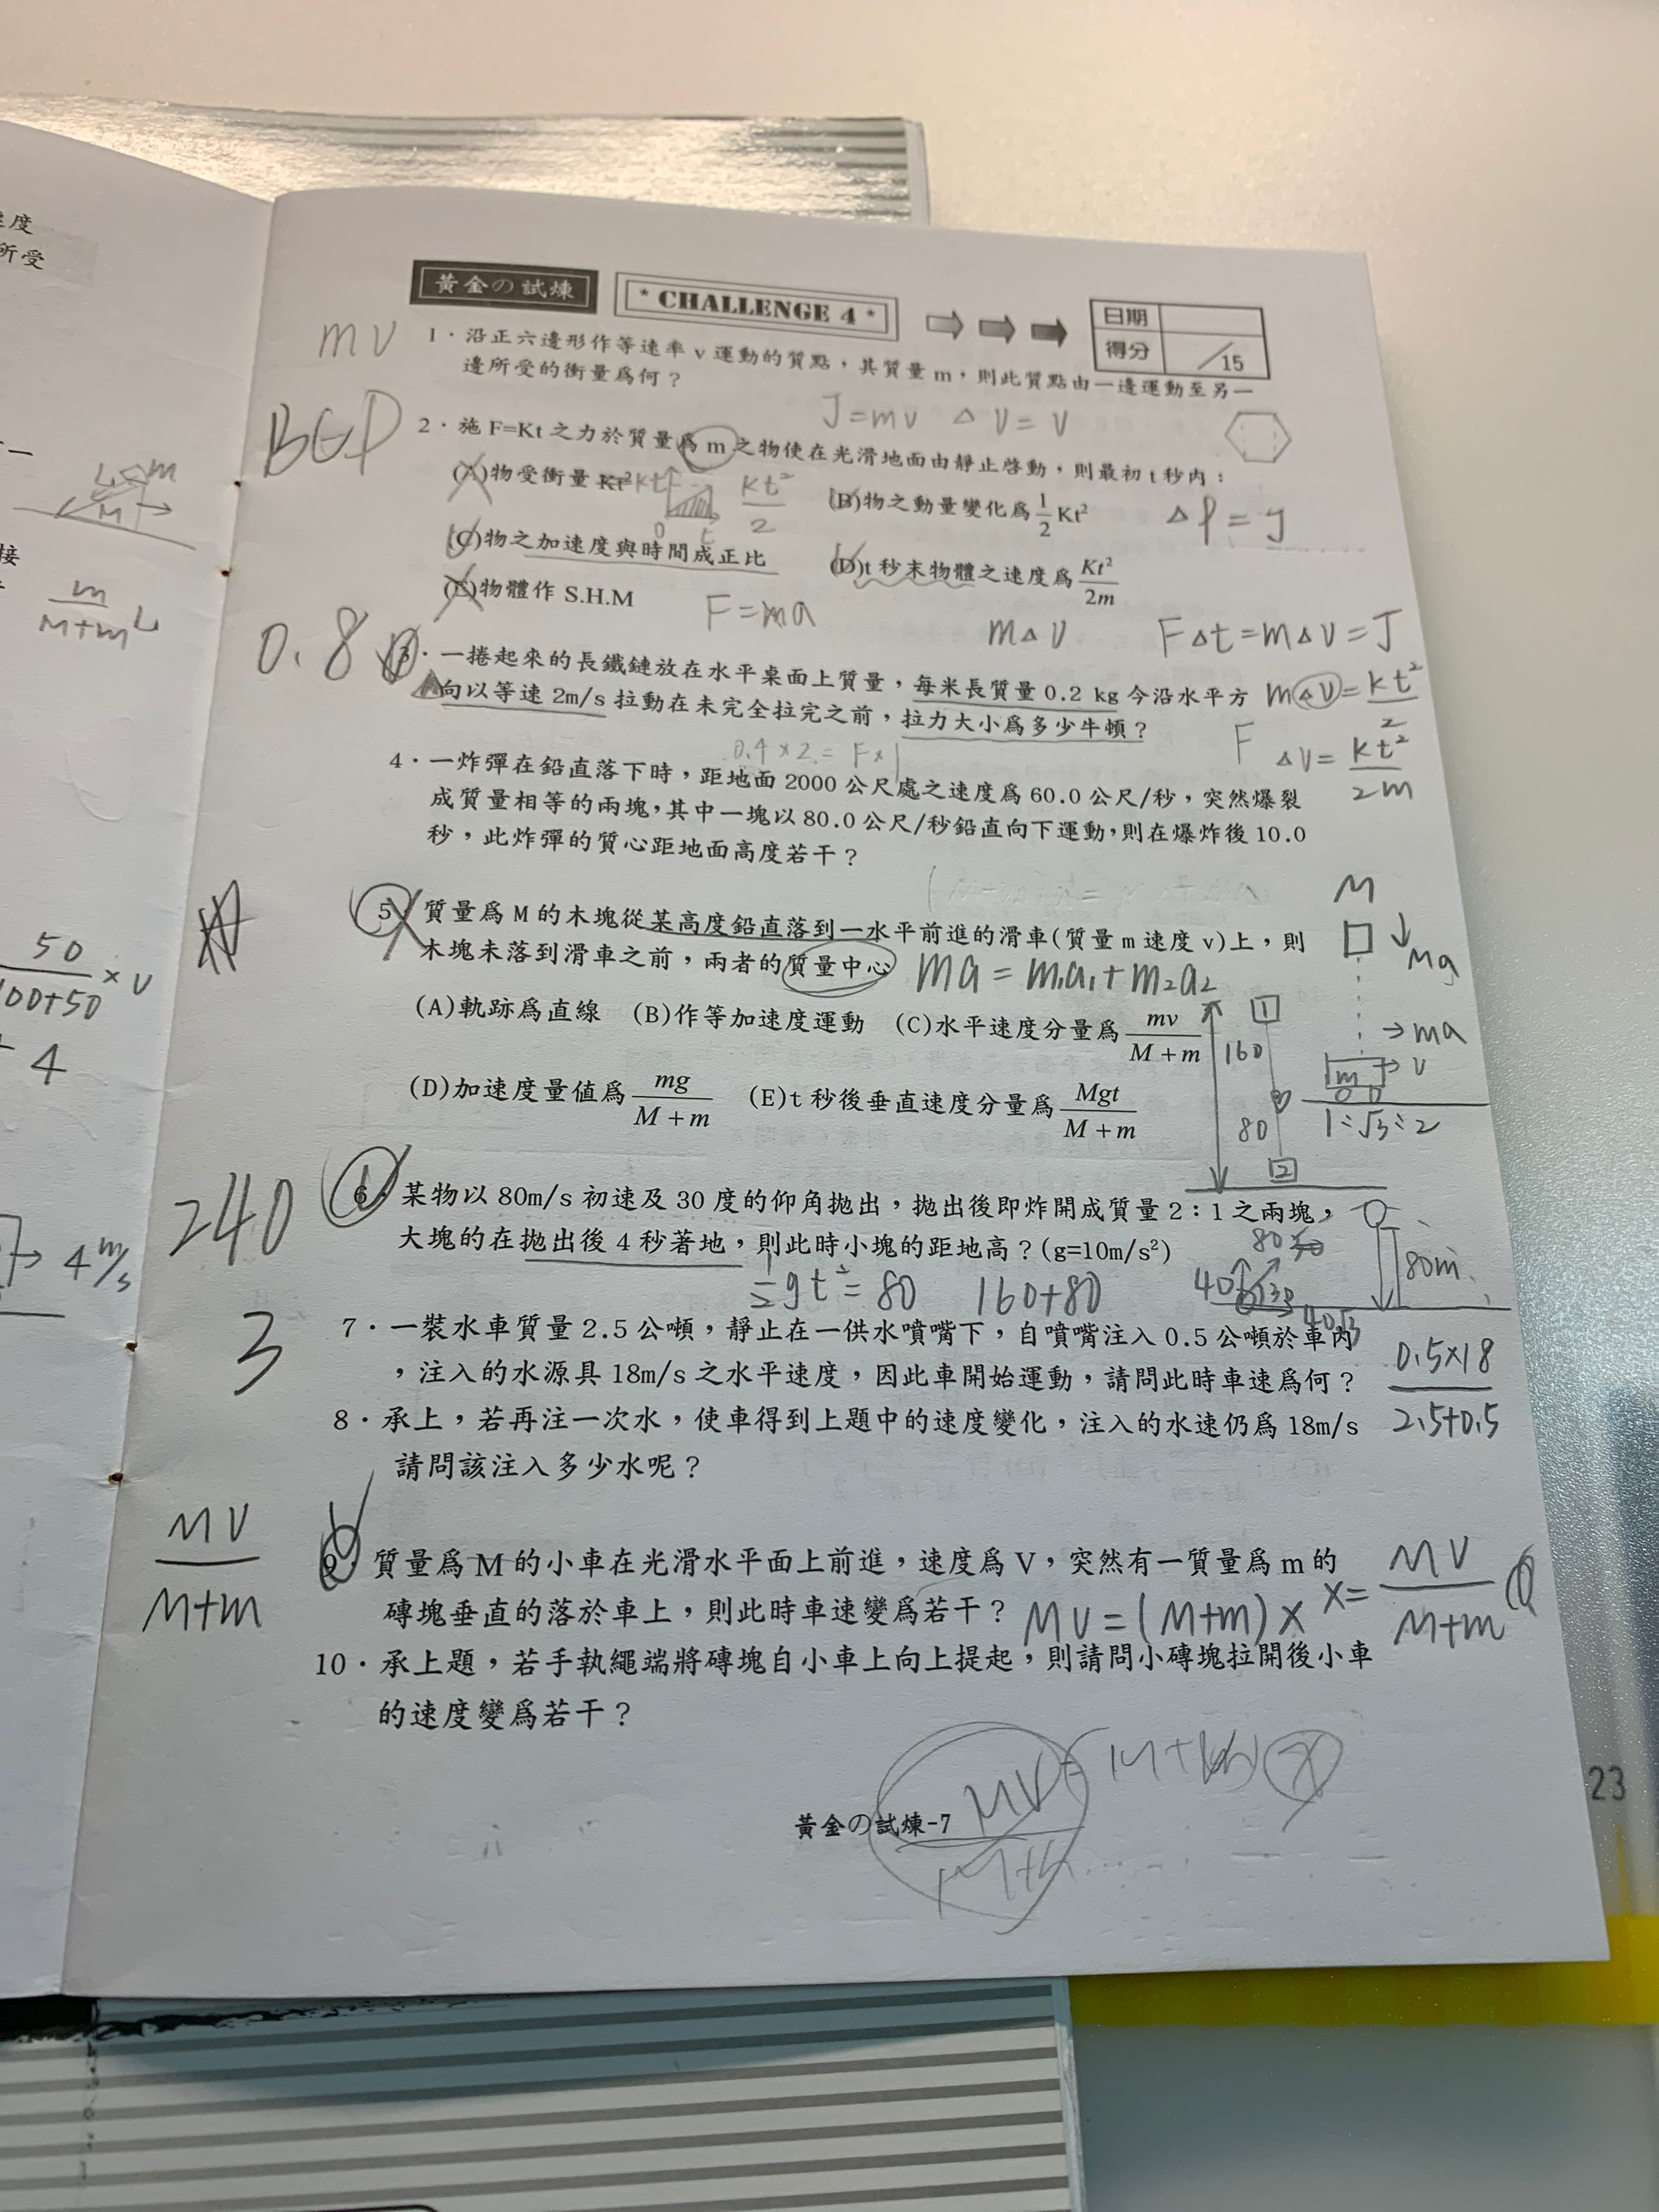 速度
所受
黃金の試煉
* CHALLENGE 4 *
日期
得分 /15
mv
1．沿正六邊形作等速率 v 運動的質點，其質量 m，則此質點由一邊運動至另一
邊所受的衝量爲何？
J=mv △v=v
BCD
2．施 F=Kt 之力於質量爲 m 之物使在光滑地面由靜止啓動，則最初 t 秒內：
(A)物受衝量 Kt² kt 0 t kt²/2
(B)物之動量變化爲 1/2 Kt² △P=J
(C)物之加速度與時間成正比
(D)t 秒末物體之速度爲 Kt²/2m
(E)物體作 S.H.M
F=ma
m△v F△t=m△v=J
0.8
3．一捲起來的長鐵鏈放在水平桌面上質量，每米長質量 0.2 kg 今沿水平方
向以等速 2m/s 拉動在未完全拉完之前，拉力大小爲多少牛頓？
m△v=kt²/2
F △v=kt²/2m
0.4×2=F×1
4．一炸彈在鉛直落下時，距地面 2000 公尺處之速度爲 60.0 公尺/秒，突然爆裂
成質量相等的兩塊，其中一塊以 80.0 公尺/秒鉛直向下運動，則在爆炸後 10.0
秒，此炸彈的質心距地面高度若干？
5．質量爲 M 的木塊從某高度鉛直落到一水平前進的滑車(質量 m 速度 v)上，則
木塊未落到滑車之前，兩者的質量中心
ma=m₁a₁+m₂a₂
M
Mg
(A)軌跡爲直線 (B)作等加速度運動 (C)水平速度分量爲 mv/M+m
(D)加速度量值爲 mg/M+m (E)t 秒後垂直速度分量爲 Mgt/M+m
1
160
80
2
ma
m v
1:√3:2
240
6．某物以 80m/s 初速及 30 度的仰角拋出，拋出後即炸開成質量 2：1 之兩塊，
大塊的在拋出後 4 秒著地，則此時小塊的距地高？(g=10m/s²)
1/2gt²=80 160+80
80
40
40√3
80m
3
7．一裝水車質量 2.5 公噸，靜止在一供水噴嘴下，自噴嘴注入 0.5 公噸於車內
，注入的水源具 18m/s 之水平速度，因此車開始運動，請問此時車速爲何？
0.5×18
2.5+0.5
8．承上，若再注一次水，使車得到上題中的速度變化，注入的水速仍爲 18m/s
請問該注入多少水呢？
MV
M+m
9．質量爲 M 的小車在光滑水平面上前進，速度爲 V，突然有一質量爲 m 的
磚塊垂直的落於車上，則此時車速變爲若干？
MV=(M+m)x x=MV/M+m
10．承上題，若手執繩端將磚塊自小車上向上提起，則請問小磚塊拉開後小車
的速度變爲若干？
黃金の試煉-7
MV
M+m
m
M
m
M+m L
接
50
100+50 ×v
4
4 m/s
23